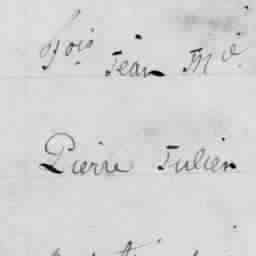 fçois Jean Mie
Pierre Julien